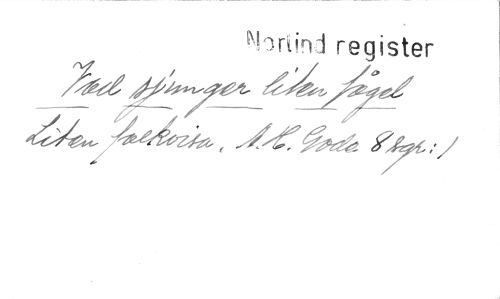 Norlind register
Vad sjunger liten fågel
Liten folkvisa. A.H. Goda 8 sgr:1